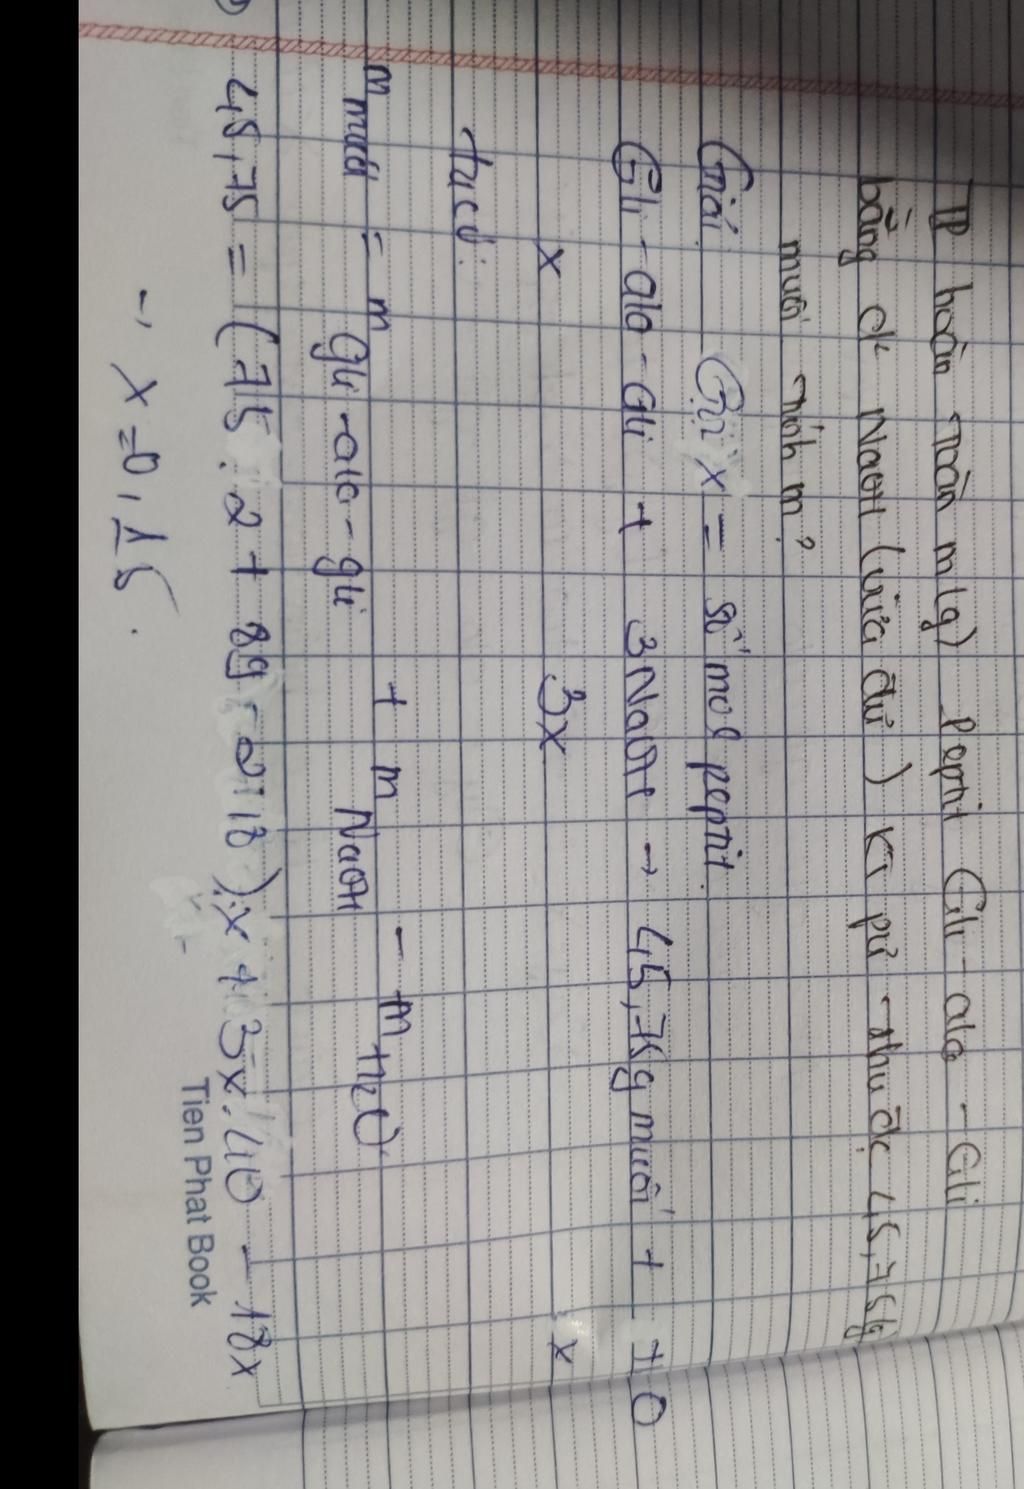 TP hoàn toàn m(g) Peptit Gli - ala - Gli
bằng dd NaOH (vừa đủ) Kt pứ thu đc 45,75g
muối tính m?
Giải Gọi x = số mol peptit.
Gli - ala - Gli + 3NaOH → 45,75g muối + H2O
x 3x x
ta có:
m muối = m Gli - ala - gli + m NaOH - m H2O
45,75 = (75.2 + 89 - 2.18).x + 3x.40 - 18x
→ x = 0,15.
Tien Phat Book